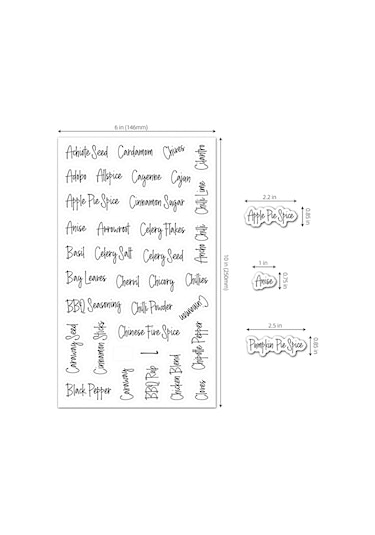 6 in (146mm)
Achiote Seed Cardamom Chives Cilantro
Adobo Allspice Cayenne Cajun
Apple Pie Spice Cinnamon Sugar Chili Lime
Anise Arrowroot Celery Flakes
Basil Celery Salt Celery Seed Ancho Chili
Bay Leaves Chervil Chicory Chillies
BBQ Seasoning Chili Powder Cinnamon
Caraway Seed Cinnamon Sticks Chinese Five Spice Chipotle Pepper
Black Pepper Caraway BBQ Rub Chicken Blend Cloves
10 in (250mm)
2.2 in
Apple Pie Spice
0.85 in
1 in
Anise
0.75 in
2.5 in
Pumpkin Pie Spice
0.85 in